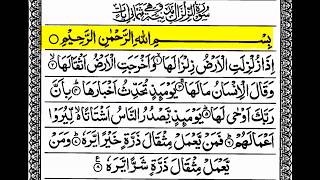 سُوْرَةُ الزِّلْزَالِ مَدَنِيَّةٌ وَّهِيَ ثَمَانِ اٰيَاتٍ
بِسْمِ اللهِ الرَّحْمٰنِ الرَّحِيْمِ
اِذَا زُلْزِلَتِ الْاَرْضُ زِلْزَالَهَا ۙ وَاَخْرَجَتِ الْاَرْضُ اَثْقَالَهَا ۙ
وَقَالَ الْاِنْسَانُ مَا لَهَا ۚ يَوْمَئِذٍ تُحَدِّثُ اَخْبَارَهَا ۙ بِاَنَّ
رَبَّكَ اَوْحٰى لَهَا ؕ يَوْمَئِذٍ يَّصْدُرُ النَّاسُ اَشْتَاتًا ۙ لِّيُرَوْا
اَعْمَالَهُمْ ؕ فَمَنْ يَّعْمَلْ مِثْقَالَ ذَرَّةٍ خَيْرًا يَّرَهٗ ؕ وَمَنْ
يَّعْمَلْ مِثْقَالَ ذَرَّةٍ شَرًّا يَّرَهٗ